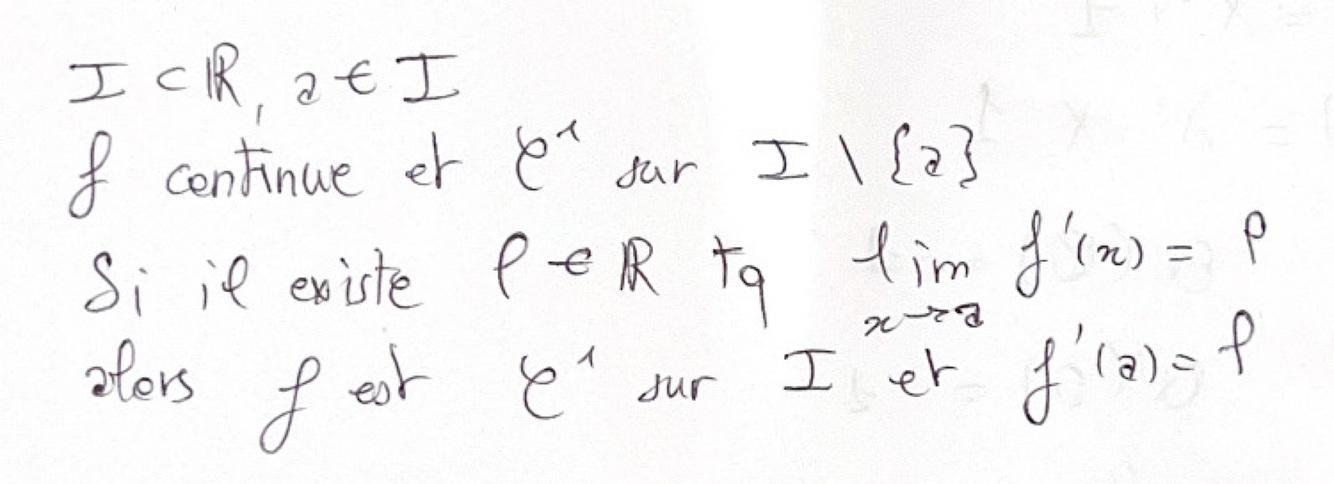 I ⊂ ℝ, a ∈ I
f continue et 𝒞¹ sur I \ {a}
Si il existe ℓ ∈ ℝ tq lim f'(x) = ℓ
x→a
alors f est 𝒞¹ sur I et f'(a) = ℓ